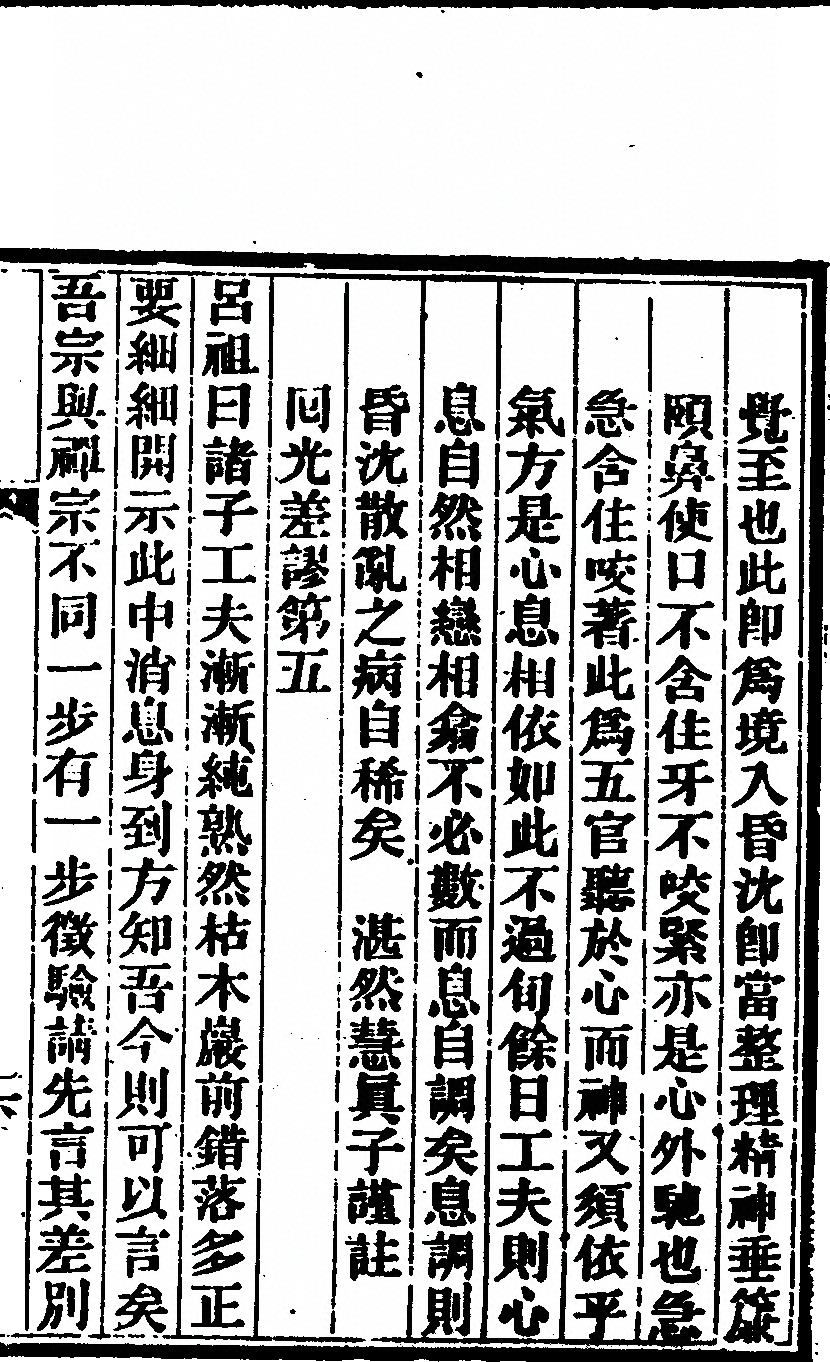 覺至也此卽爲境入昏沈卽當整理精神垂簾
頤鼻使口不含住牙不咬緊亦是心外馳也急
急含住咬著此爲五官聽於心而神又須依乎
氣方是心息相依如此不過旬餘日工夫則心
息自然相戀相翕不必數而息自調矣息調則
昏沈散亂之病自稀矣　湛然慧眞子謹註
回光差謬第五
呂祖曰諸子工夫漸漸純熟然枯木巖前錯落多正
要細細開示此中消息身到方知吾今則可以言矣
吾宗與禪宗不同一步有一步徵驗請先言其差別